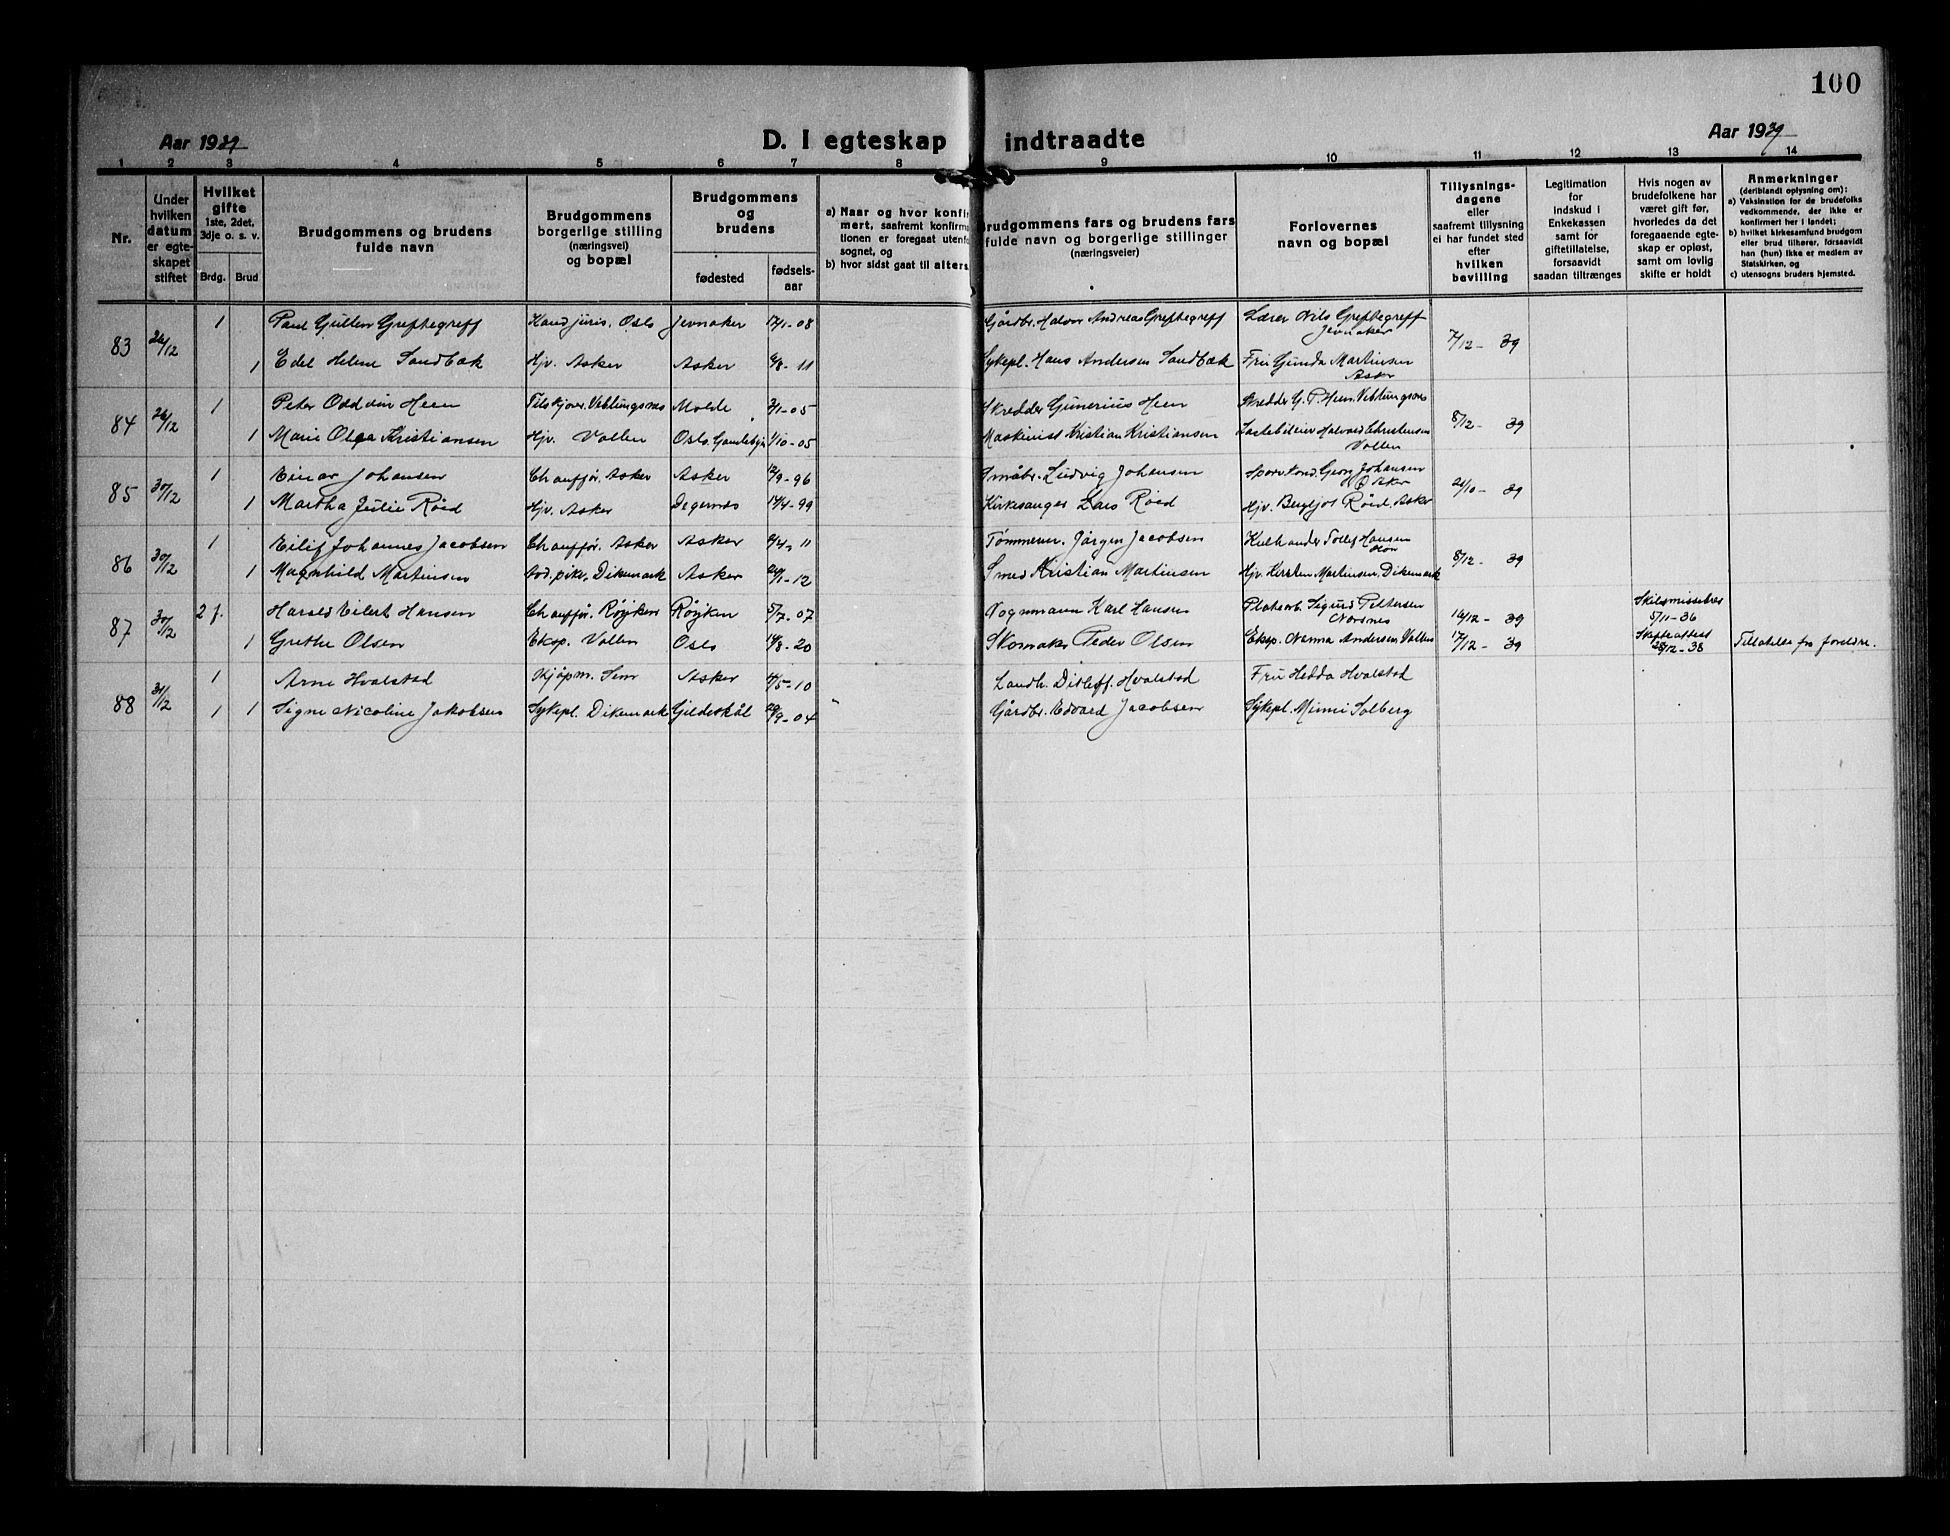 100
Aar 1939
D. I egteskap indtraadte
Aar 1939
1 2 3 4 5 6 7 8 9 10 11 12 13 14
Nr.
Under hvilken datum er egteskapet stiftet
Hvilket gifte
1ste, 2det, 3dje o. s. v.
Brdg. Brud
Brudgommens og brudens fulde navn
Brudgommens borgerlige stilling (næringsvei) og bopæl
Brudgommens og brudens
fødested
fødselsaar
a) Naar og hvor konfir
mert, saafremt konfirma
tionen er foregaat utenfo
sognet, og
b) hvor sidst gaat til alters.
Brudgommens fars og brudens fars
fulde navn og borgerlige stillinger
(næringsveier)
Forlovernes
navn og bopæl
Tillysningsdagene
eller
saafremt tillysning
ei har fundet sted
efter
hvilken
bevilling
Legitimation
for
indskud i
Enkekassen
samt for
giftetillatelse,
forsaavidt
saadan tiltrænges
Hvis nogen av
brudefolkene har
været gift før,
hvorledes da det
foregaaende egteskap er opløst,
samt om lovlig
skifte er holdt
Anmerkninger
(deriblandt oplysning om):
a) Vaksination for de brudefolks
vedkommende, der ikke er
konfirmert her i landet;
b) hvilket kirkesamfund brudgom
eller brud tilhører, førsaavidt
han (hun) ikke er medlem av
Statskirken, og
c) utensogns bruders hjemsted.
83 26/12 1 Paul Gullen Greftegreff Kand juris. Oslo Jevnaker 17/1-08 Gårdbr. Halvor Andreas Greftegreff Lærer Nils Greftegreff Jevnaker 7/12-39
1 Edel Helene Sandbæk Hj. Asker Asker 6/8-11 Sykepl. Hans Andersen Sandbæk Fru Gunda Martinsen Asker
84 26/12 1 Peter Oddvin Heen Veblungsnes Molde 3/1-05 Skredder Gunerius Heen Skredder G. P. Heen. Veblungsnes 8/12-39
1 Marie Olga Kristiansen Hj. Vollen Oslo. Gamlebyen 1/10-05 Maskinist Kristian Kristiansen Lastebileier Halvard Christensen Vollen
85 30/12 1 Einar Johansen Chauffør. Asker Asker 12/9-96 Småbr. Ludvig Johansen Georg Johansen Asker 21/10-39
1 Martha Julie Røed Hj. Asker Degernes 14/4-99 Kirkesanger Lars Røed Hj. Bergljot Røed. Asker
86 30/12 1 Eilif Johannes Jacobsen Chauffør. Asker Asker 4/4-11 Tømmerm. Jørgen Jacobsen Hansen 8/12-39
1 Magnhild Martinsen Dikemark Asker 26/1-12 Smed Kristian Martinsen Hj. Kirsten Martinsen, Dikemark
87 30/12 2 f. Harald Eilert Hansen Chauffør. Røyken Røyken 5/7-07 Vognmann Karl Hansen Sigurd Pettersen Nærsnes 16/12-39 Skilsmissebev. 5/11-36
1 Grethe Olsen Eksp. Vollen Oslo 14/8-20 Skomaker Peder Olsen Eksp. Nanna Andersen Vollen 17/12-39 Skifteattest 28/12-38 Tillatelse fra foreldre.
88 31/12 1 Arne Hvalstad Kjøpm. Sem Asker 4/5-10 Landh. Ditleff. Hvalstad Fru Hedda Hvalstad
1 1 Signe Nicoline Jakobsen Sykepl. Dikemark Gildeskål 29/9-04 Gårdbr. Edvard Jacobsen Sykepl. Minni Solberg